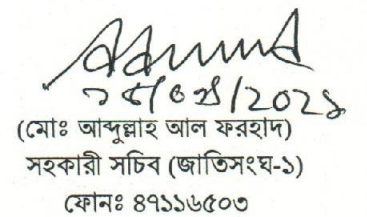 (মোঃ আব্দুল্লাহ আল ফরহাদ)
সহকারী সচিব (জাতিসংঘ-১)
ফোনঃ ৪৭১১৬৫০৩